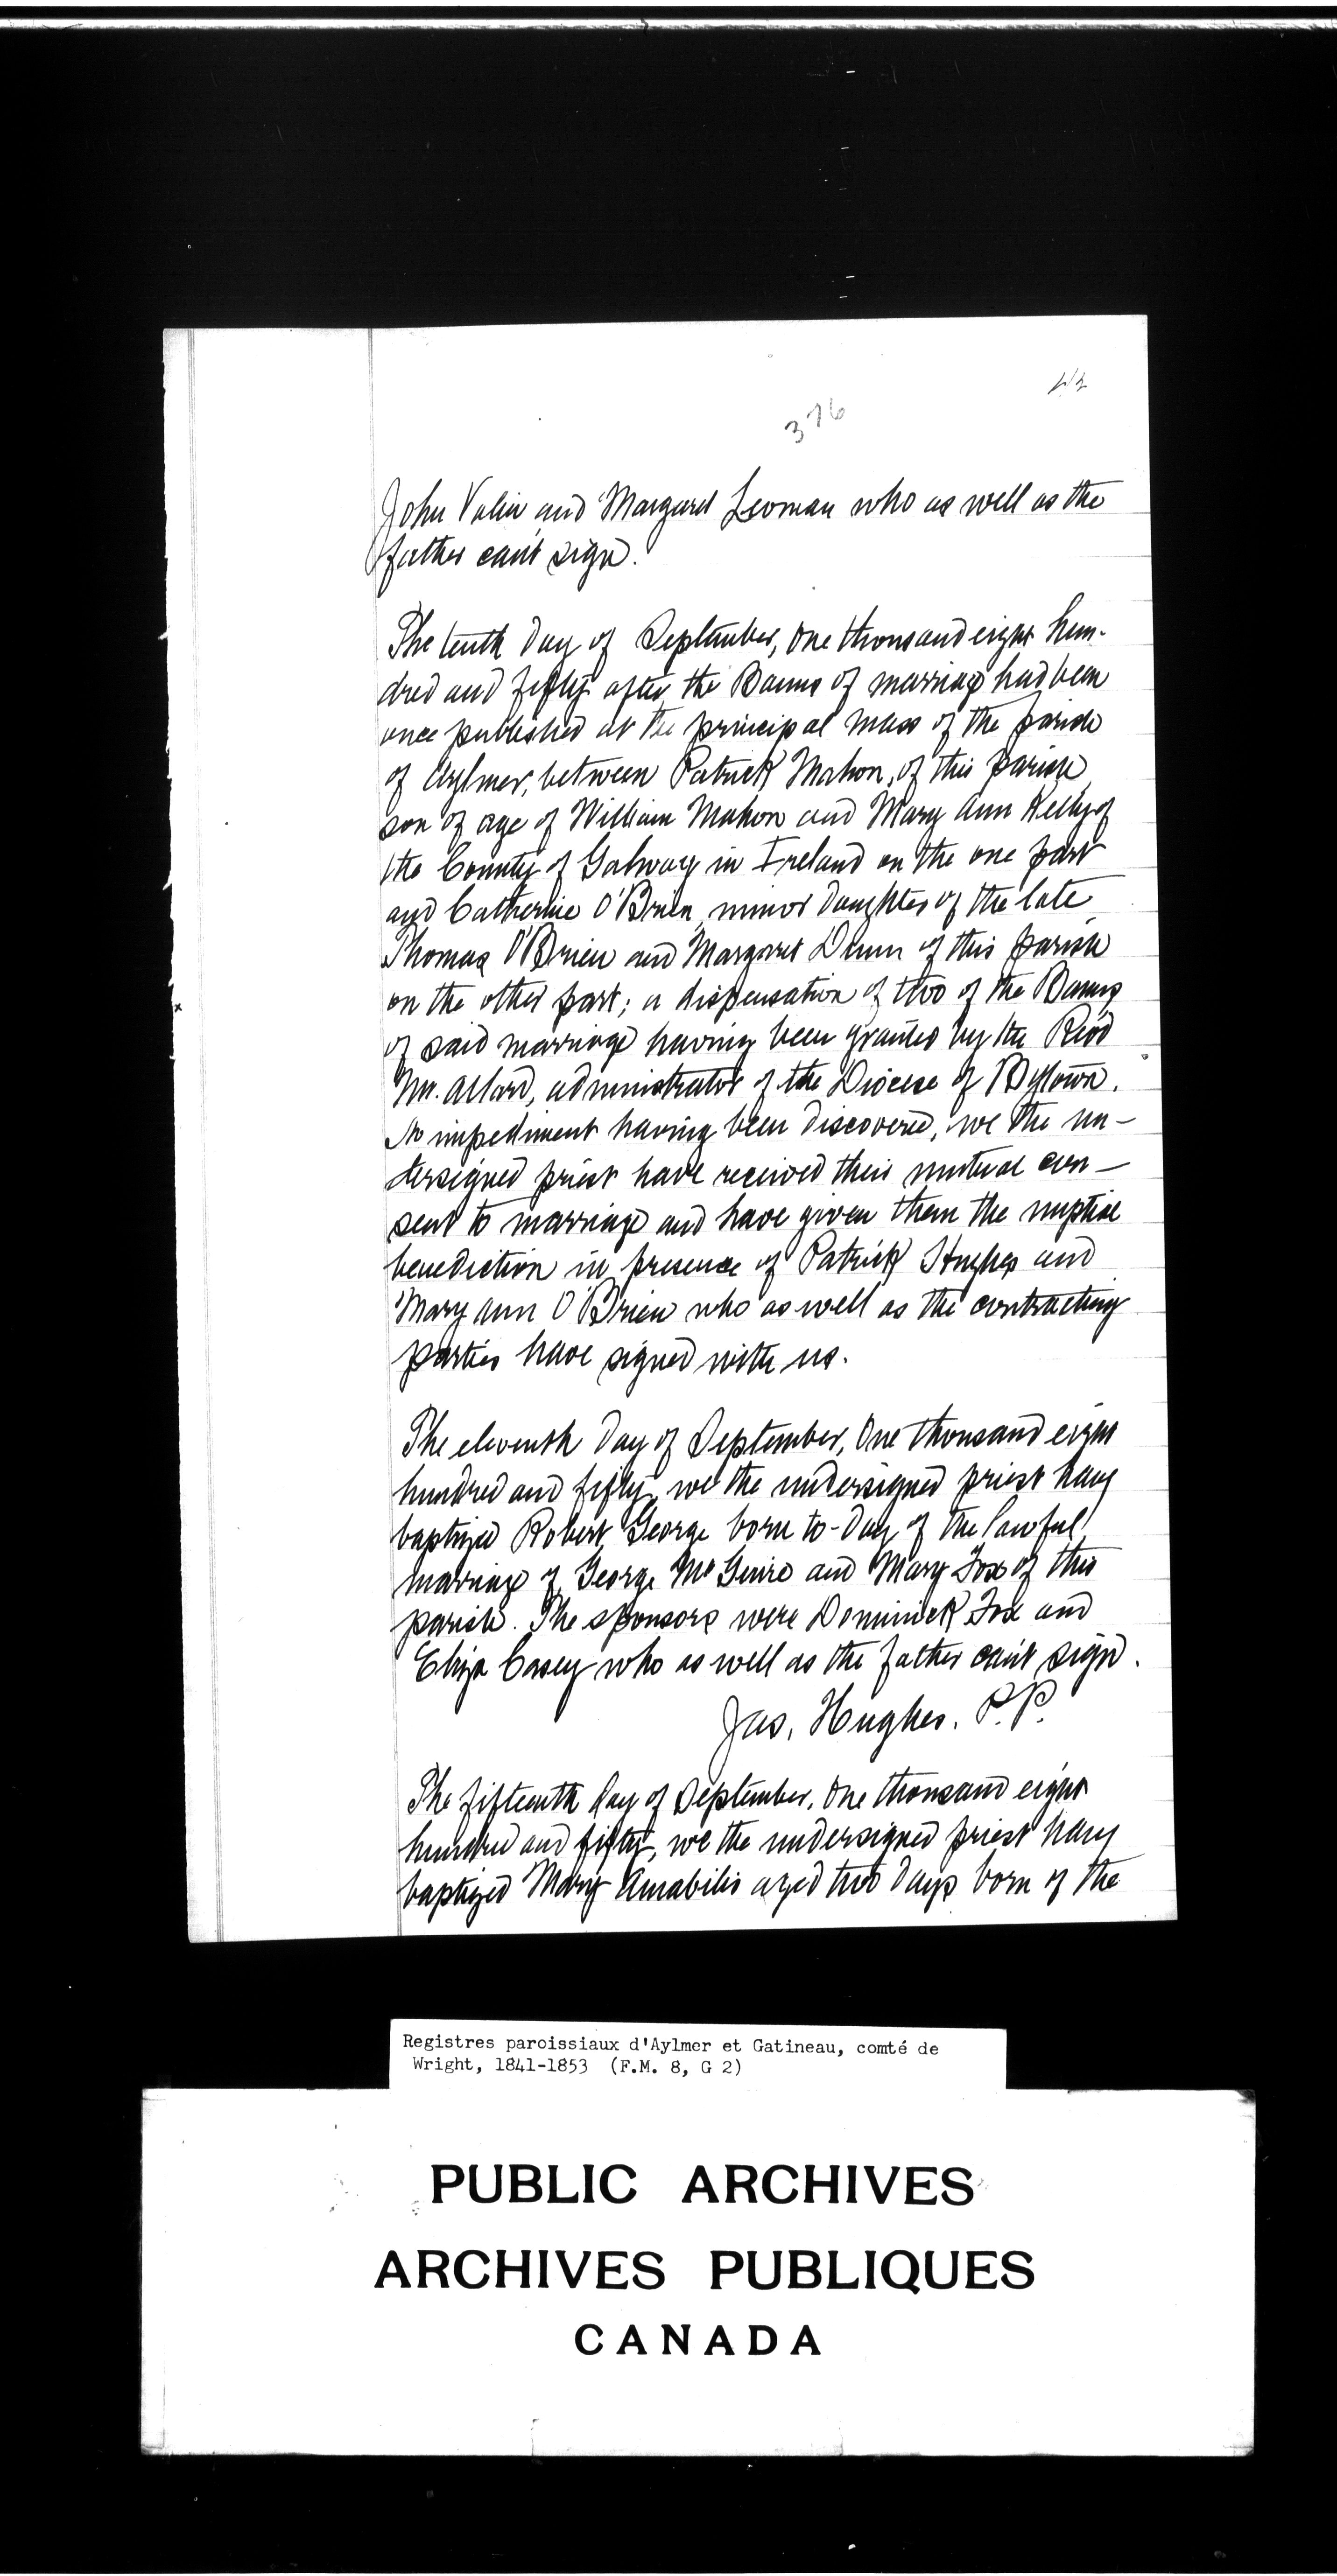 376
John Valin and Margaret Leoman who as well as the
father can't sign.
The tenth day of September, One thousand eight hun-
dred and fifty after the Banns of marriage had been
once published at the principal mass of the parish
of Aylmer, between Patrick Mahon, of this parish
son of age of William Mahon and Mary Ann Kelly of
the County of Galway in Ireland on the one part
and Catherine O'Brien, minor daughter of the late
Thomas O'Brien and Margaret Dunn of this parish
on the other part; a dispensation of two of the Banns
of said marriage having been granted by the Revd
Mr. Allard, administrator of the Diocese of Bytown.
No impediment having been discovered, we the un-
dersigned priest have received their mutual con-
sent to marriage and have given them the nuptial
benediction in presence of Patrick Hughes and
Mary Ann O'Brien who as well as the contracting
parties have signed with us.
The eleventh day of September, One thousand eight
hundred and fifty, we the undersigned priest have
baptized Robert George born to-day of the lawful
marriage of George McGuire and Mary Fox of this
parish. The sponsors were Dominick Fox and
Eliza Casey who as well as the father can't sign.
Jas, Hughes. P.P.
The fifteenth day of September, One thousand eight
hundred and fifty, we the undersigned priest have
baptized Mary Amabilis aged two days born of the
Registres paroissiaux d'Aylmer et Gatineau, comté de
Wright, 1841-1853 (F.M. 8, G 2)
PUBLIC ARCHIVES
ARCHIVES PUBLIQUES
CANADA